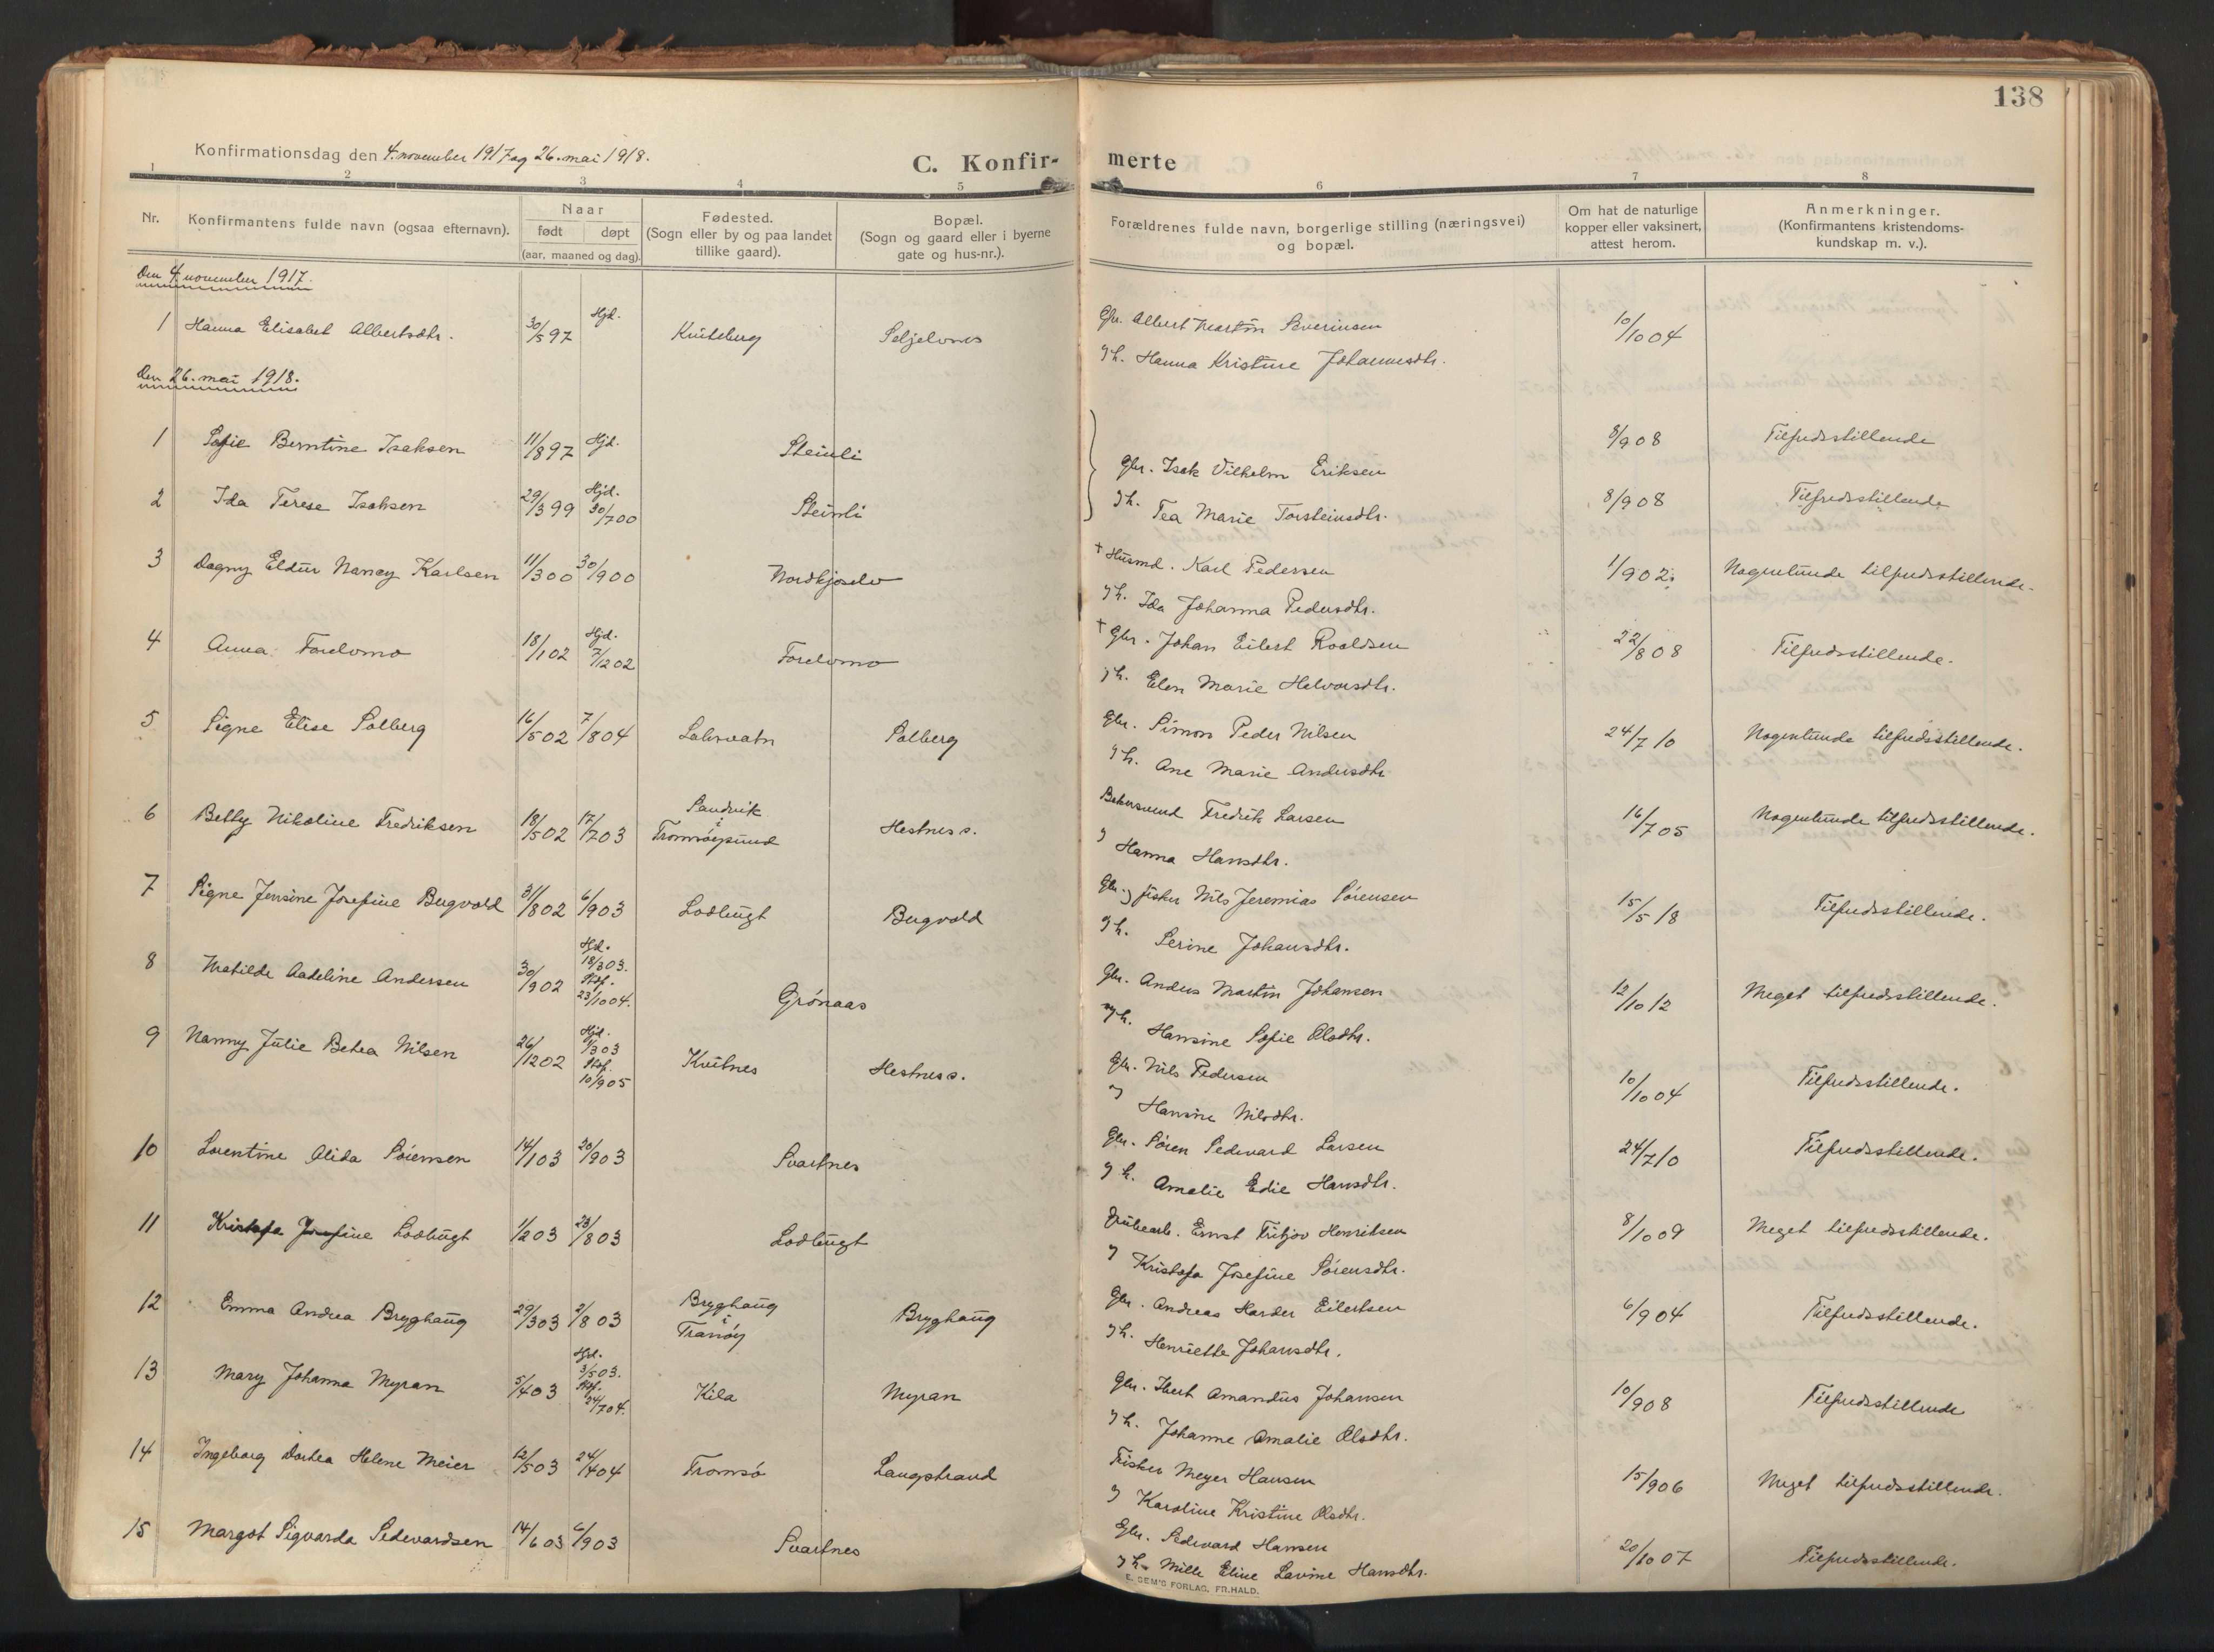 138
Konfirmationsdag den 4. november 1917 og 26. mai 1918.
C. Konfir- merte
1 2 3 4 5 6 7 8
Nr. Konfirmantens fulde navn (ogsaa efternavn). Naar født døpt (aar, maaned og dag). Fødested. (Sogn eller by og paa landet tillike gaard). Bopæl. (Sogn og gaard eller i byerne gate og hus-nr.). Forældrenes fulde navn, borgerlige stilling (næringsvei) og bopæl. Om hat de naturlige kopper eller vaksinert, attest herom. Anmerkninger. (Konfirmantens kristendoms- kundskap m. v.).
Den 4. november 1917.
1 Hanna Elisabet Albertsdtr. 30/5 97 Hjd. Kviteberg Seljelvnes Gbr. Albert Martin Severinsen 10/10 04
og h. Hanna Kristine Johannesdtr.
Den 26. mai 1918.
1 Sofie Berntine Isaksen 11/8 97 Hjd. Steinli 8/9 08 Tilfredsstillende
Gbr. Isak Vilhelm Eriksen
2 Ida Terese Isaksen 29/3 99 Hjd. 30/7 00 Steinli 8/9 08 Tilfredsstillende
og h. Tea Marie Torsteinsdtr.
3 Dagny Eldur Nancy Karlsen 11/3 00 30/9 00 Nordkjoselv + Husmd. Karl Pedersen 1/9 02. Nogenlunde tilfredsstillende.
og h. Ida Johanna Pedersdtr.
4 Anna Forelvmo 18/1 02 Hjd. 7/12 02 Forelvmo + Gbr. Johan Eilert Roaldsen 22/8 08 Tilfredsstillende.
og h. Elen Marie Helvorsdtr.
5 Signe Elise Solberg 16/5 02 7/8 04 Laksvatn Solberg Gbr. Simon Peder Nilsen 24/7 10 Nogenlunde tilfredsstillende.
og h. Ane Marie Andersdtr.
6 Betty Nikoline Fredriksen 18/5 02 17/7 03 Sandvik i Tromsøysund Hestnes s. Fredrik Larsen 16/7 05 Nogenlunde tilfredsstillende.
og Hanna Hansdtr.
7 Signe Jensine Josefine Bergvold 31/8 02 6/9 03 Lodbugt Bergvold Gbr. og fisker Nils Jeremias Sørensen 15/5 18 Tilfredsstillende.
og h. Serine Johansdtr.
8 Matilde Aadeline Andersen 30/9 02 Hjd. 18/3 03. Stdf. 23/10 04. Grønaas Gbr. Anders Martin Johansen 12/10 12 Meget tilfredsstillende.
og h. Hansine Sofie Olsdtr.
9 Nanny Julie Betea Nilsen 26/12 02 Hjd. 1/3 03 Stdf. 10/9 05 Kvitnes Hestnes s. Gbr. Nils Pedersen 10/10 04 Tilfredsstillende.
og Hansine Nilsdtr.
10 Lorentine Alida Sørensen 14/1 03 20/9 03 Svartnes Gbr. Søren Sedevard Larsen 24/7 10 Tilfredsstillende.
og h. Amalie Edie Hansdtr.
11 Kristofa Josefine Lodbugt 1/2 03 23/8 03 Lodbugt Grubearb. Ernst Fritjov Henriksen 8/10 09 Meget tilfredsstillende.
og Kristofa Josefine Sørensdtr.
12 Emma Andrea Bryghaug 29/3 03 2/8 03 Bryghaug i Tranøy Bryghaug Gbr. Andreas Harder Eilertsen 6/9 04 Tilfredsstillende.
og h. Henriette Johansdtr.
13 Mary Johanna Myran 5/4 03 Hjd. 3/5 03. Stdf. 24/7 04. Kila Myran Gbr. Amandus Johansen 10/9 08 Tilfredsstillende
og h. Johanne Amalie Olsdtr.
14 Ingeborg Dortea Helene Meier 12/5 03 24/4 04 Tromsø Langstrand Fisker Meyer Hansen 15/9 06 Meget tilfredsstillende.
og Karoline Kristine Olsdtr.
15 Margot Sigvarda Sedevardsen 14/6 03 6/9 03 Svartnes Gbr. Sedevard Hansen 20/10 07 Tilfredsstillende.
og h. Mille Eline Lavine Hansdtr.
E. SEM'S FORLAG, FR.HALD.